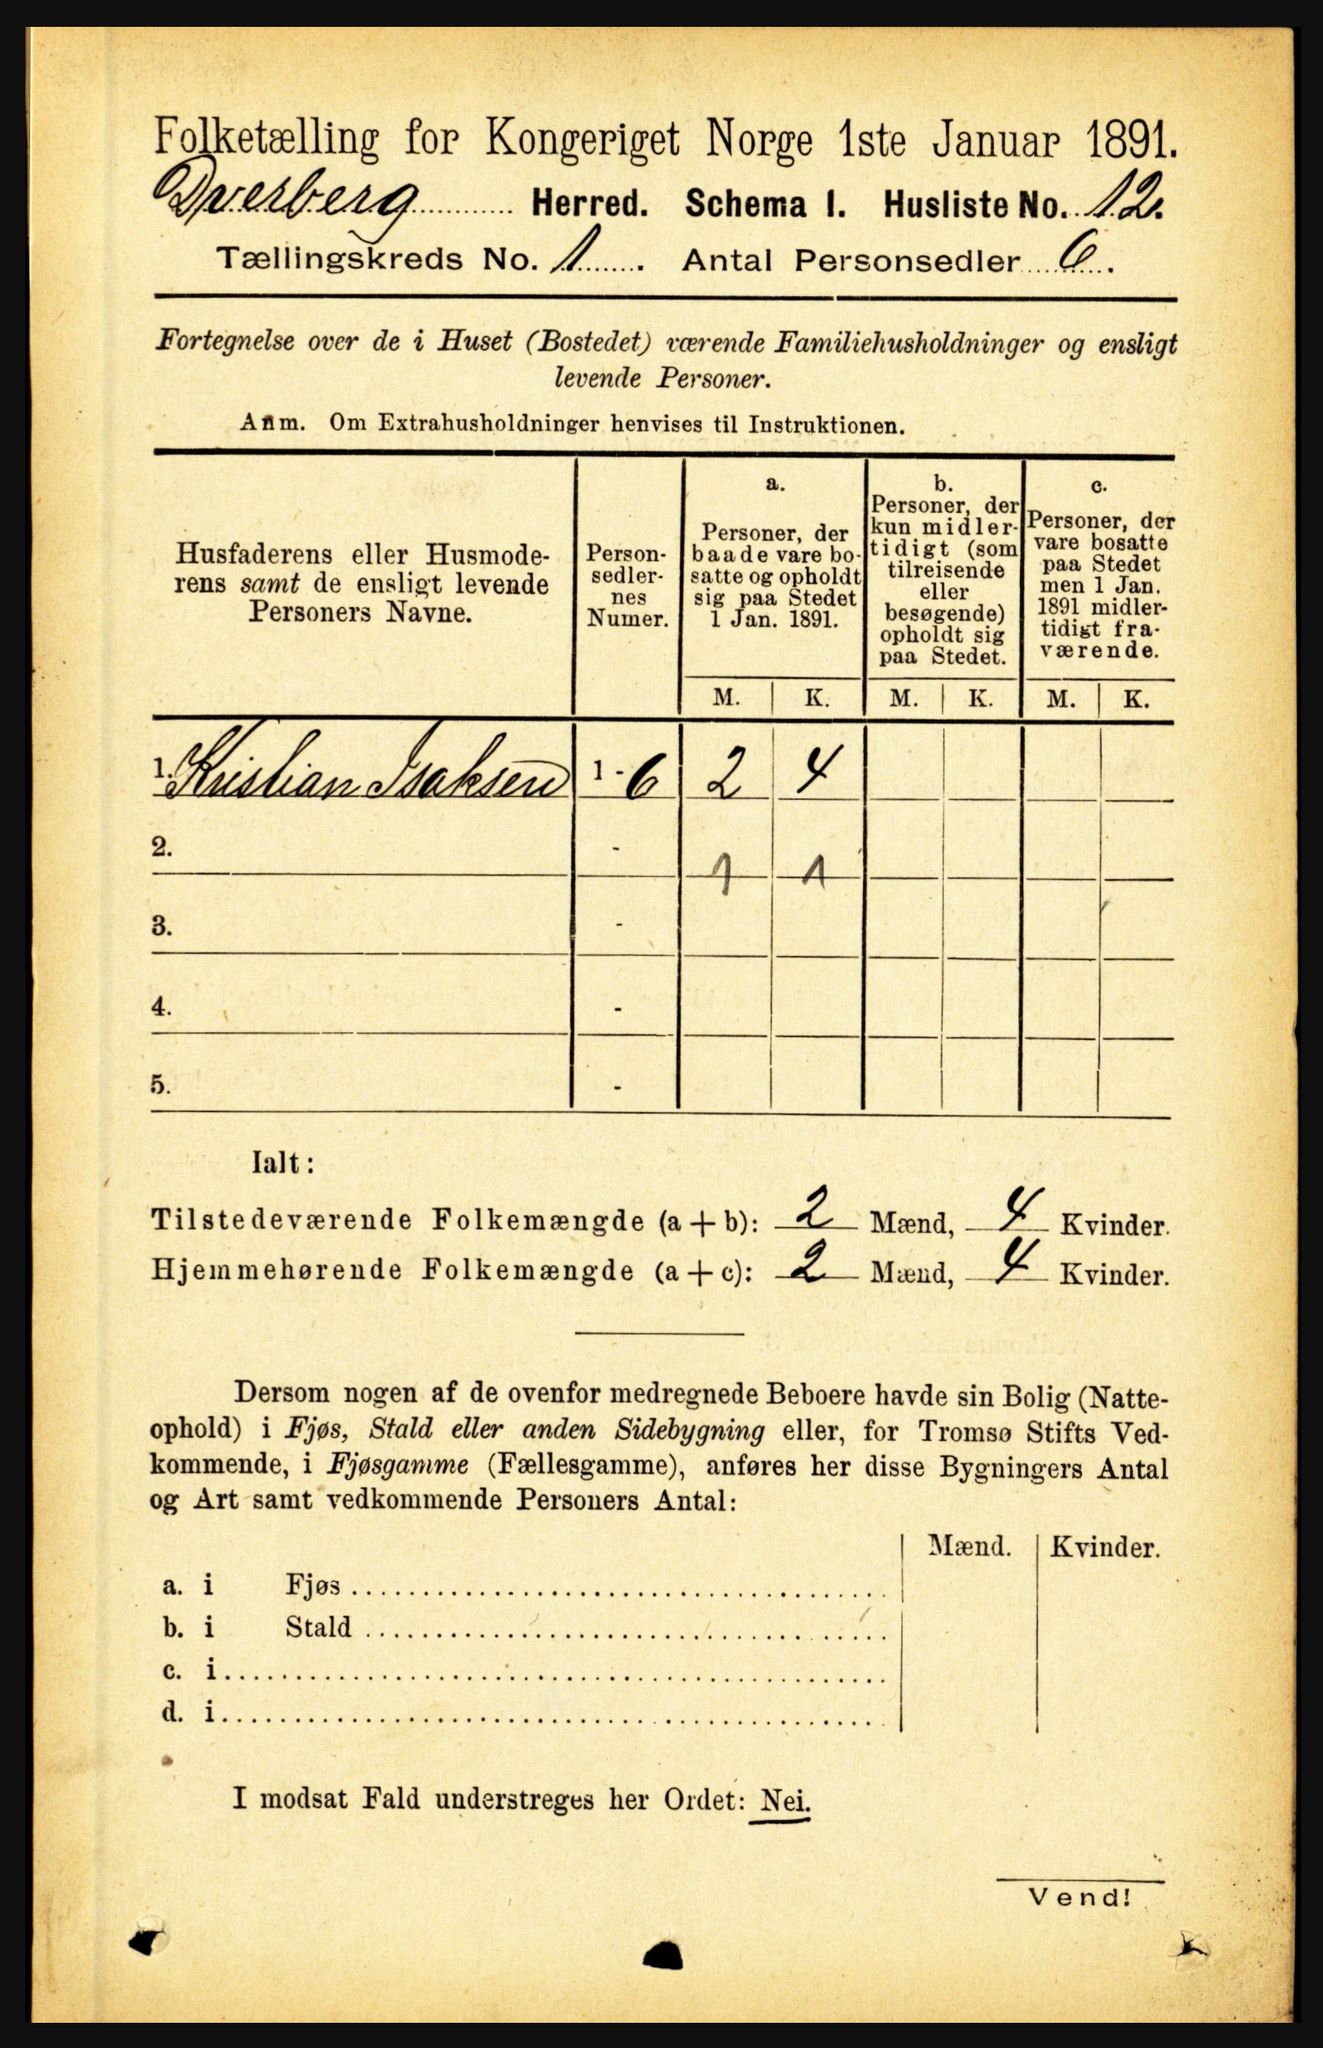 Folketælling for Kongeriget Norge 1ste Januar 1891.
Dverberg Herred. Schema I. Husliste No. 12.
Tællingskreds No. 1. Antal Personsedler 6.
Fortegnelse over de i Huset (Bostedet) værende Familiehusholdninger og ensligt
levende Personer.
Anm. Om Extrahusholdninger henvises til Instruktionen.
Husfaderens eller Husmode-
rens samt de ensligt levende
Personers Navne.
Person-
sedler-
nes
Numer.
a.
Personer, der
baade vare bo-
satte og opholdt
sig paa Stedet
1 Jan. 1891.
b.
Personer, der
kun midler-
tidigt (som
tilreisende
eller
besøgende)
opholdt sig
paa Stedet.
c.
Personer, der
vare bosatte
paa Stedet
men 1 Jan.
1891 midler-
tidigt fra-
værende.
M. K. M. K. M. K.
1. Kristian Isaksen 1 - 6 2 4
2. - 1 1
3. -
4. -
5. -
Ialt:
Tilstedeværende Folkemængde (a + b): 2 Mænd, 4 Kvinder.
Hjemmehørende Folkemængde (a + c): 2 Mænd, 4 Kvinder.
Dersom nogen af de ovenfor medregnede Beboere havde sin Bolig (Natte-
ophold) i Fjøs, Stald eller anden Sidebygning eller, for Tromsø Stifts Ved-
kommende, i Fjøsgamme (Fællesgamme), anføres her disse Bygningers Antal
og Art samt vedkommende Personers Antal:
Mænd. Kvinder.
a. i Fjøs
b. i Stald
c. i
d. i
I modsat Fald understreges her Ordet: Nei.
Vend!